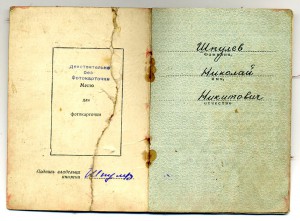 Действительно
без
Фотокарточки
Место
для
фотокарточки
Подпись владельца
книжки Шпулев
Шпулев
фамилия,
Николай
имя,
Никитович
отчество.